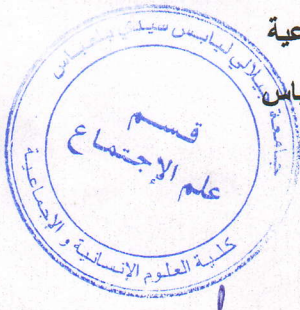 جامعة جيلالي ليابس سيدي بلعباس
قسم
علم الإجتماع
كلية العلوم الإنسانية و الإجتماعية